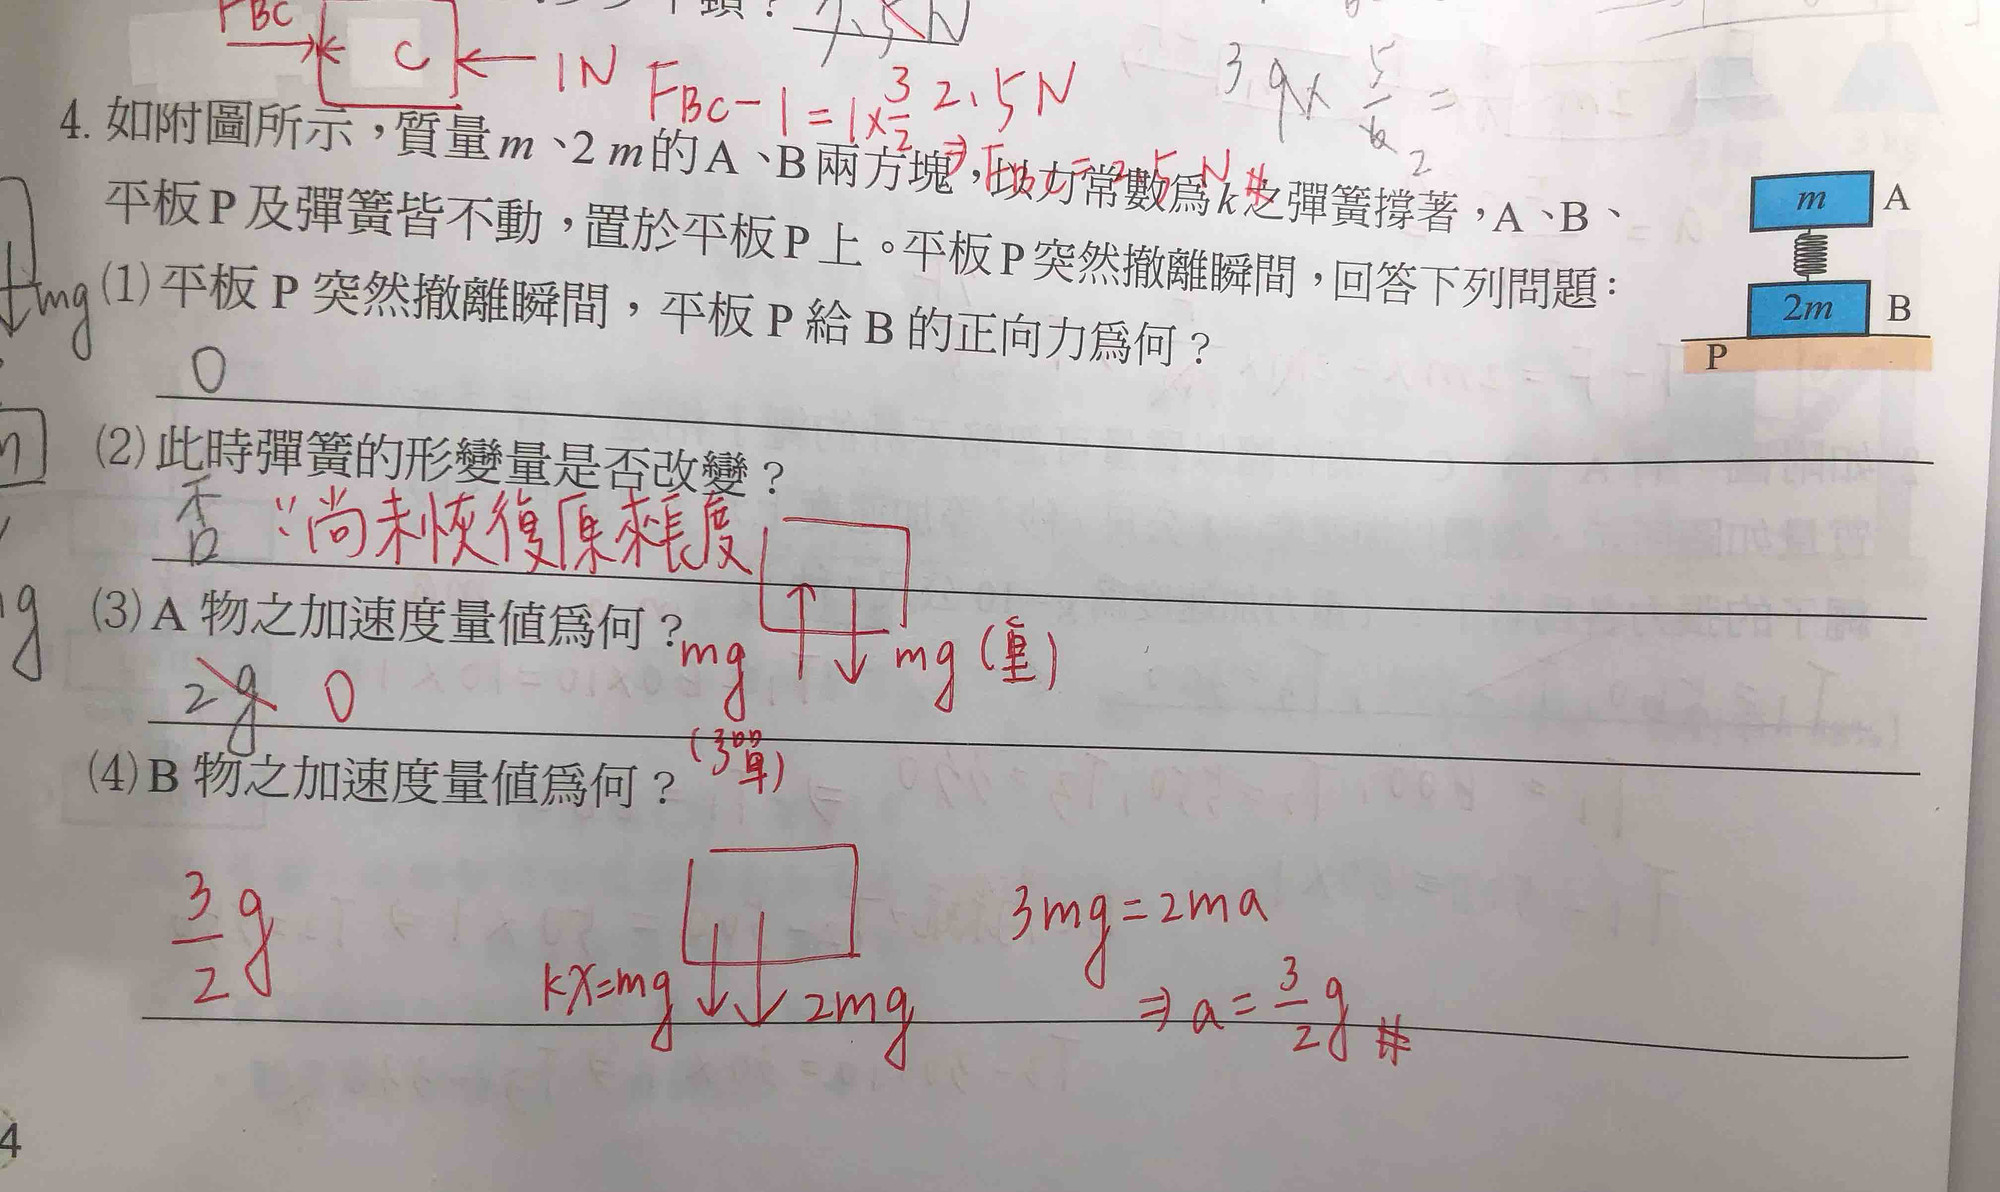 FBC
C
1N
FBC-1=1×3/2 2.5N
3g×5/6 2 =
7.5N
4. 如附圖所示，質量 m、2 m 的 A、B 兩方塊，以力常數為 k 之彈簧撐著，A、B、
平板 P 及彈簧皆不動，置於平板 P 上。平板 P 突然撤離瞬間，回答下列問題：
m A
2m B
P
mg
(1) 平板 P 突然撤離瞬間，平板 P 給 B 的正向力為何？
0
(2) 此時彈簧的形變量是否改變？
否 ∵尚未恢復原來長度
(3) A 物之加速度量值為何？
2g 0
mg
(彈)
mg (重)
(4) B 物之加速度量值為何？
3/2 g
kx=mg
2mg
3mg=2ma
⇒ a=3/2 g #
4